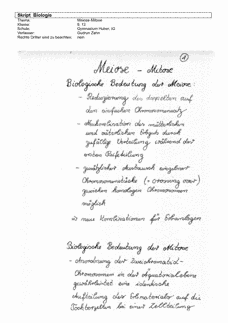 Skript Biologie
Thema: Meiose-Mitose
Klasse: 9, 13
Schule: Gymnasium
Verfasser: Gudrun Zahn
Rechte Dritter sind zu beachten: nein
1
Meiose - Mitose
Biologische Bedeutung der Meiose:
- Reduzierung des doppelten auf
den einfachen Chromosomensatz
- Neukombination des mütterlichen
und väterlichen Erbguts durch
zufällige Verteilung während der
ersten Reifeteilung
- zusätzlicher Austausch einzelner
Chromosomenstücke (= Crossing over)
zwischen homologen Chromosomen
möglich
⇒ neue Kombinationen für Erbanlagen
Biologische Bedeutung der Mitose
- Anordnung der Zweichromatid-
Chromosomen in der Äquatorialebene
gewährleistet eine identische
Aufteilung des Erbmaterials auf die
Tochterzellen bei einer Zellteilung